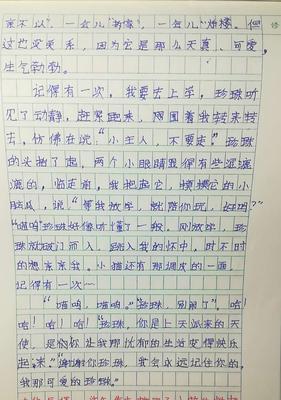 一会儿"奶漾"，一会儿"烟楼。但
这也没关系，因为它是那么天真、可爱，
生气勃勃。
记得有一次，我要去上学，珍珠听
见了动静，赶紧跑来，网围着我转来转
去，仿佛在说："小主人，不要走。"珍珠
的头抬了起，两个小眼睛显得有些湿漉
漉的，临走前，我抱起它，摸摸它的小
脑袋，说"等我放学，就陪你玩，好吗？"
"喵喵"珍珠好像听懂了一般，刚放学，珍
珠就破门而入，跳入我的怀中，时不时
的想亲亲我。小猫还有那调皮的一面，
记得有一次一
"喵喵，喵喵。""珍珠，别闹了"。哈！
哈！哈！哈！"珍珠，你是上天派来的天
使，是你让我那忧郁的生活变得快乐
起来。""谢谢你珍珠，我会永远记住你的，
我那可爱的珍珠。"